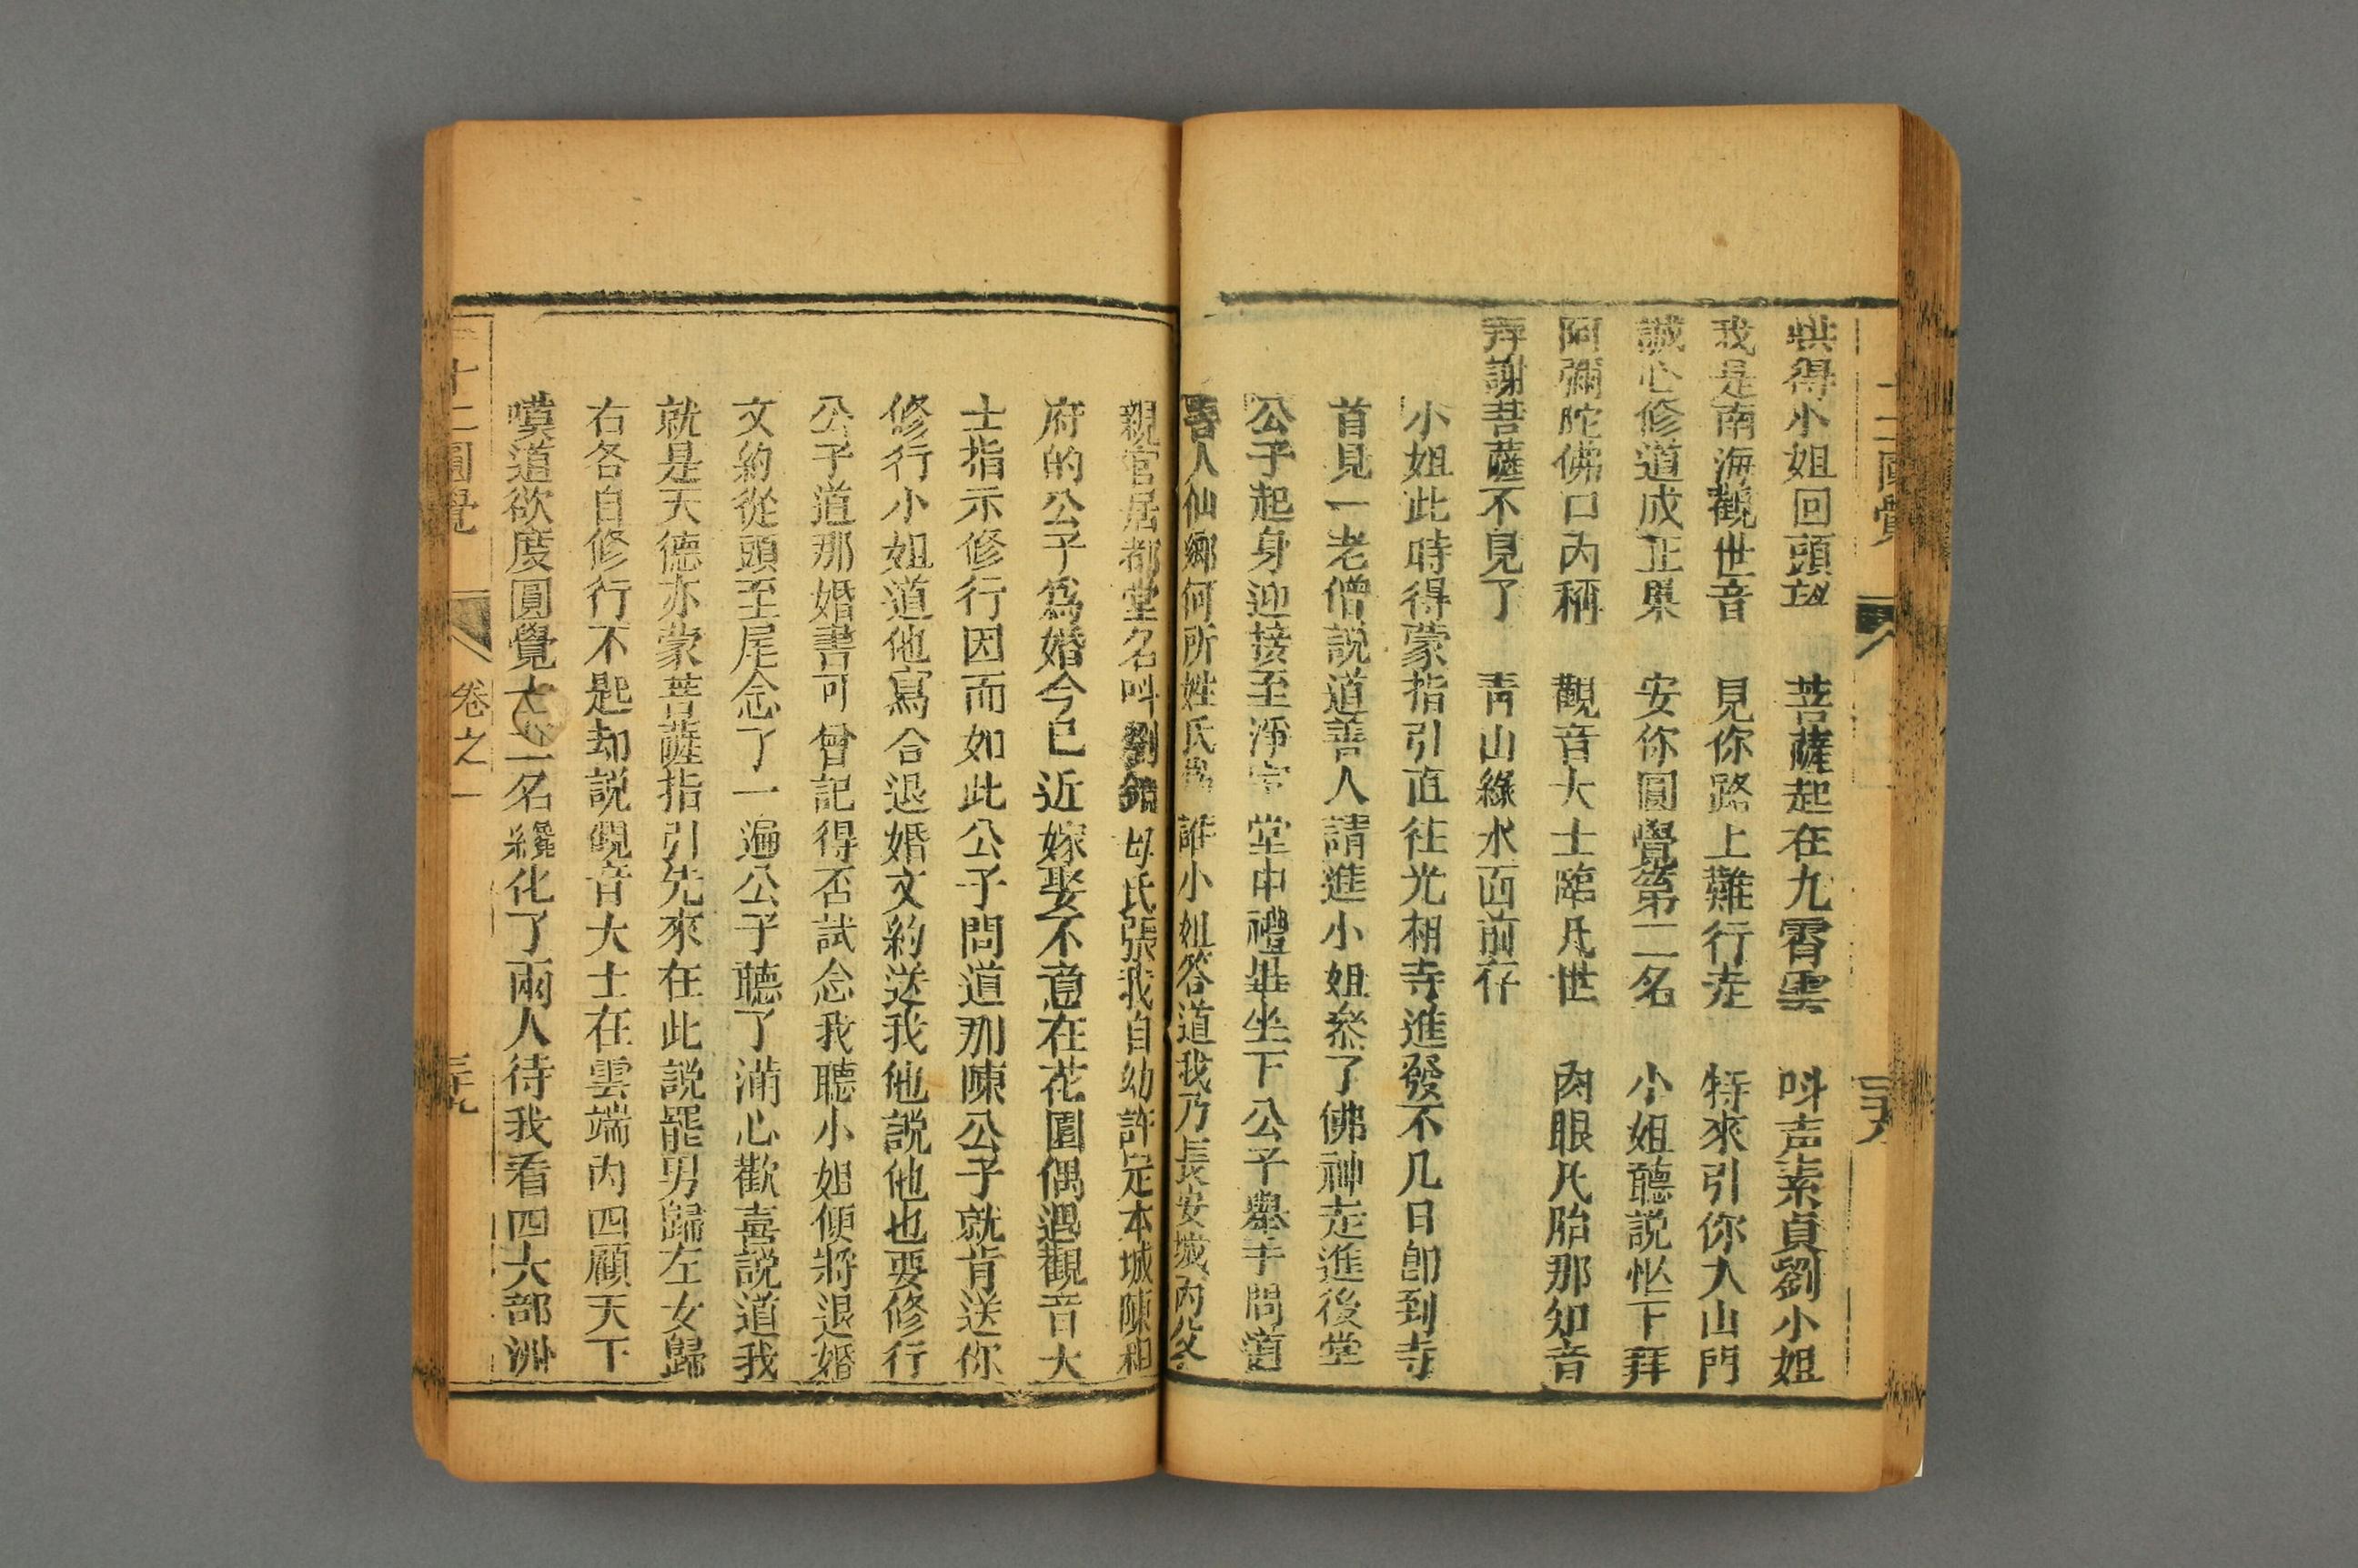 哄得小姐回頭望 菩薩起在九霄雲 呌声素貞劉小姐
我是南海觀世音 見你路上難行走 特來引你入山門
誠心修道成正果 安你圓覺第二名 小姐聽説忙下拜
阿彌陀佛口內稱 觀音大士臨凡世 肉眼凡胎那知音
拜謝菩薩不見了 青山綠水面前存
小姐此時得蒙指引直往光相寺進發不几日即到寺
首見一老僧説道善人請進小姐叅了佛神走進後堂
公子起身迎接至淨室堂中禮畢坐下公子舉手問道
善人仙鄉何所姓氏爲誰小姐答道我乃長安城內父
親官居都堂名呌劉錦母氏張我自幼許定本城陳相
府的公子爲婚今已近嫁娶不意在花園偶遇觀音大
士指示修行因而如此公子問道那陳公子就肯送你
修行小姐道他寫合退婚文約送我他説他也要修行
公子道那婚書可曾記得否試念我聽小姐便將退婚
文約從頭至尾念了一遍公子聽了滿心歡喜説道我
就是天德亦蒙菩薩指引先來在此説罷男歸左女歸
右各自修行不題却説觀音大士在雲端內四顧天下
嘆道欲度圓覺十二名纔化了兩人待我看四大部洲
十二圓覺 卷之一